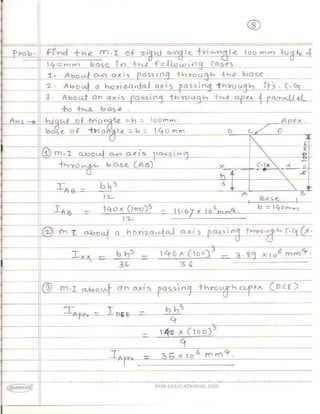 8
Prob:- Find the M.I of right angle triangle 100 mm high &
140 mm base in the following cases.
1. About an axis passing through the base.
2. About a horizontal axis passing through its C.G
3. About an axis passing through the apex & parallel
to the base.
Ans → higut of triangle = h = 100mm.
base of triangle = b = 140 mm
Apex.
D C E
① M.I about an axis passing
through base (AB)
X C.G X
h/3
h = 100 mm
A B
Base
b = 140mm
I_AB = bh³/12
I_AB = 140 × (100)³/12 = 11.67 × 10⁶ mm⁴.
② M.I about a horizontal axis passing through C.G (X-
I_xx = bh³/36 = 140 × (100)³/36 = 3.89 × 10⁶ mm⁴.
③ M.I about an axis passing through apex (DCE)
I_Apex = I_DCE = bh³/4
= 140 × (100)³/4
I_Apex = 35 × 10⁶ mm⁴.
FOR EDUCATIONAL USE